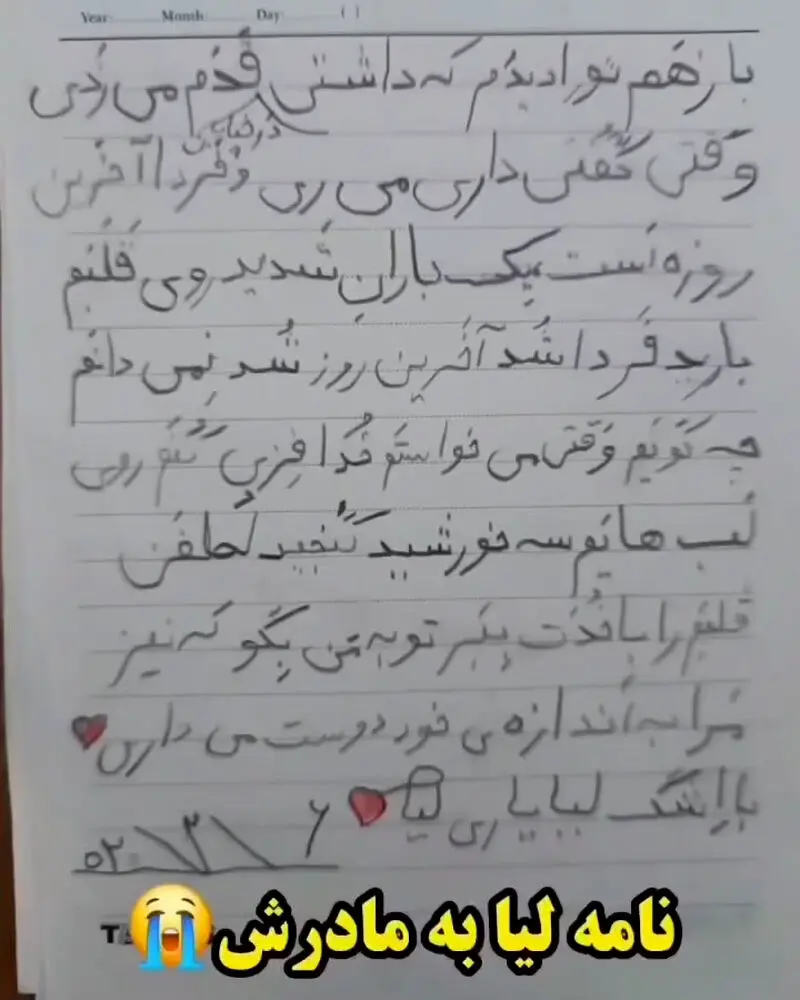 Year Month Day ( )
باز هَم تو را دیدَم که داشتی قَدَم می زَدی
دَر خیابان
وَقتی گُفتی داری می ری وَ فَردا آخَرین
روزه اَست یِک بارانِ شَدید روی قَلبَم
بارید فَردا شُد آخَرین روز شُد نِمی دانَم
چه گویَم وَقتی می خواستَم خُدافِزی کُنَم روی
لَب هایَم سه خورشید گُنجید لُطفَن
قَلبَم را با خُدَت بِبَر تو به مَن بِگو که نیز
مَرا به اَندازه ی خود دوست می داری
با اِشگ لیا یاری لیا
۶ ۳ ۵۲
نامه لیا به مادرش